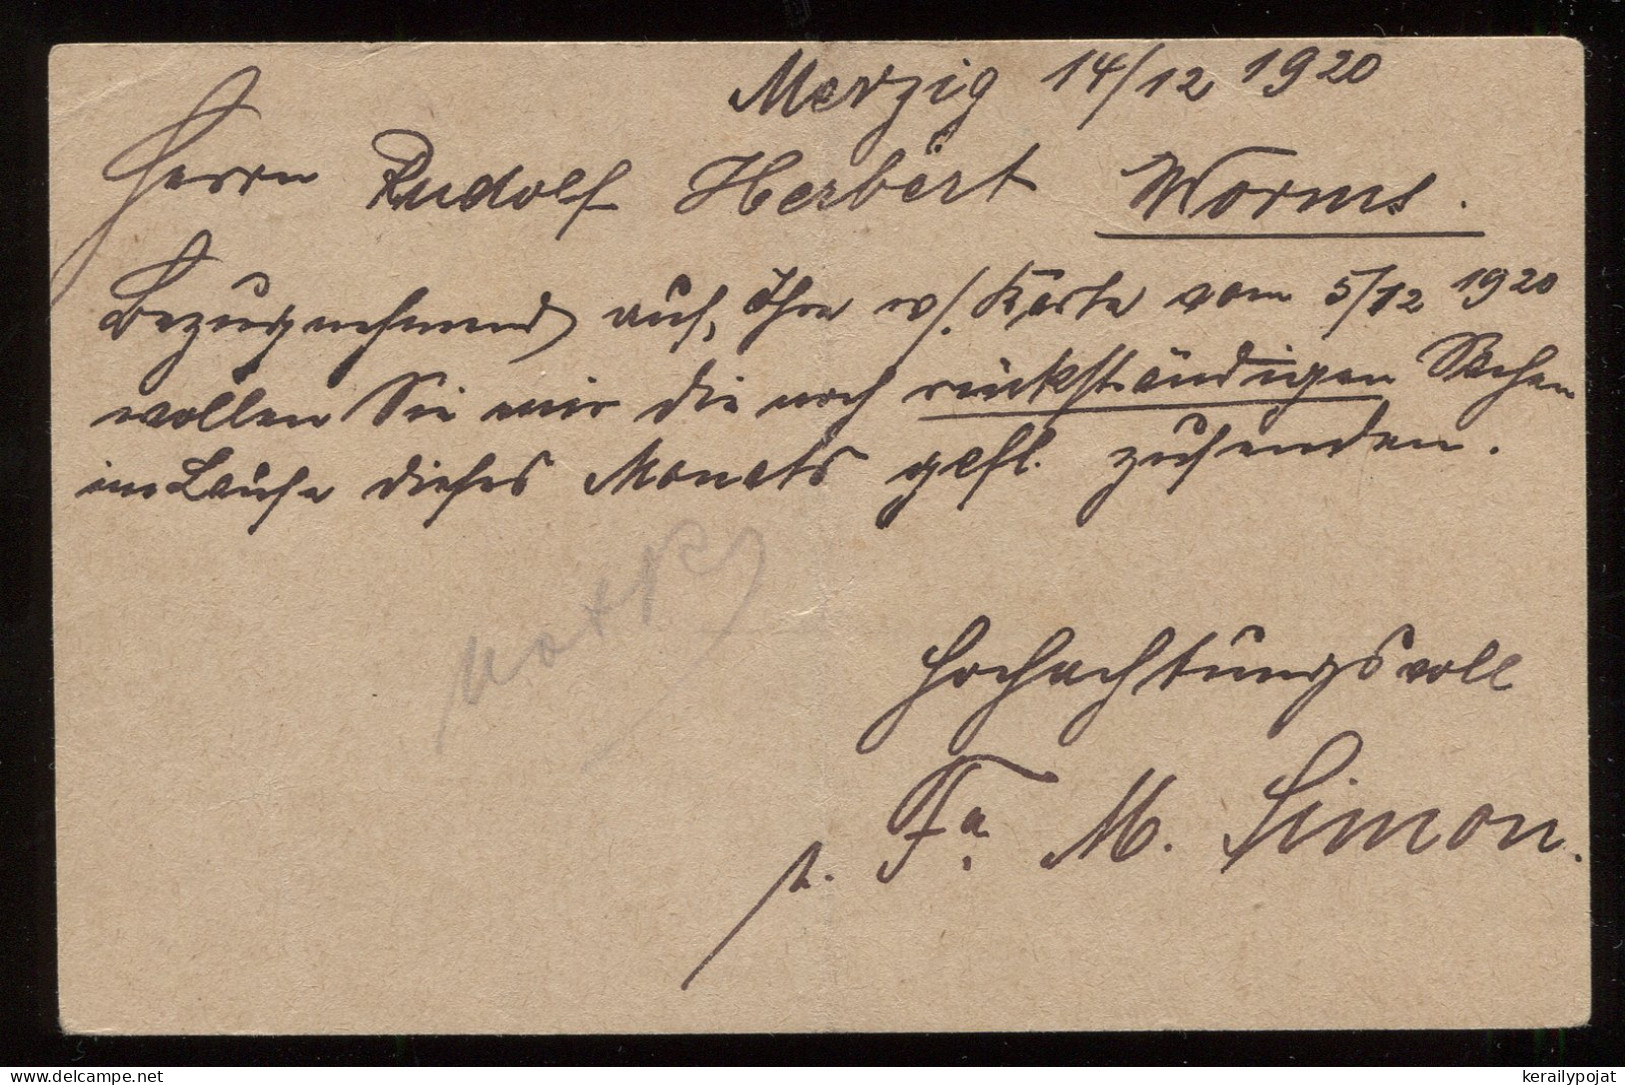 Merzig 14/12 1920
Herrn Rudolf Herbert Worms.
Bezugnehmend auf Ihre w/. Karte vom 5/12 1920
wollen Sie mir die noch rückständigen Sachen
im Laufe dieses Monats gefl. zusenden.
Hochachtungsvoll
p. Fa. M. Simon.
kerailypojat